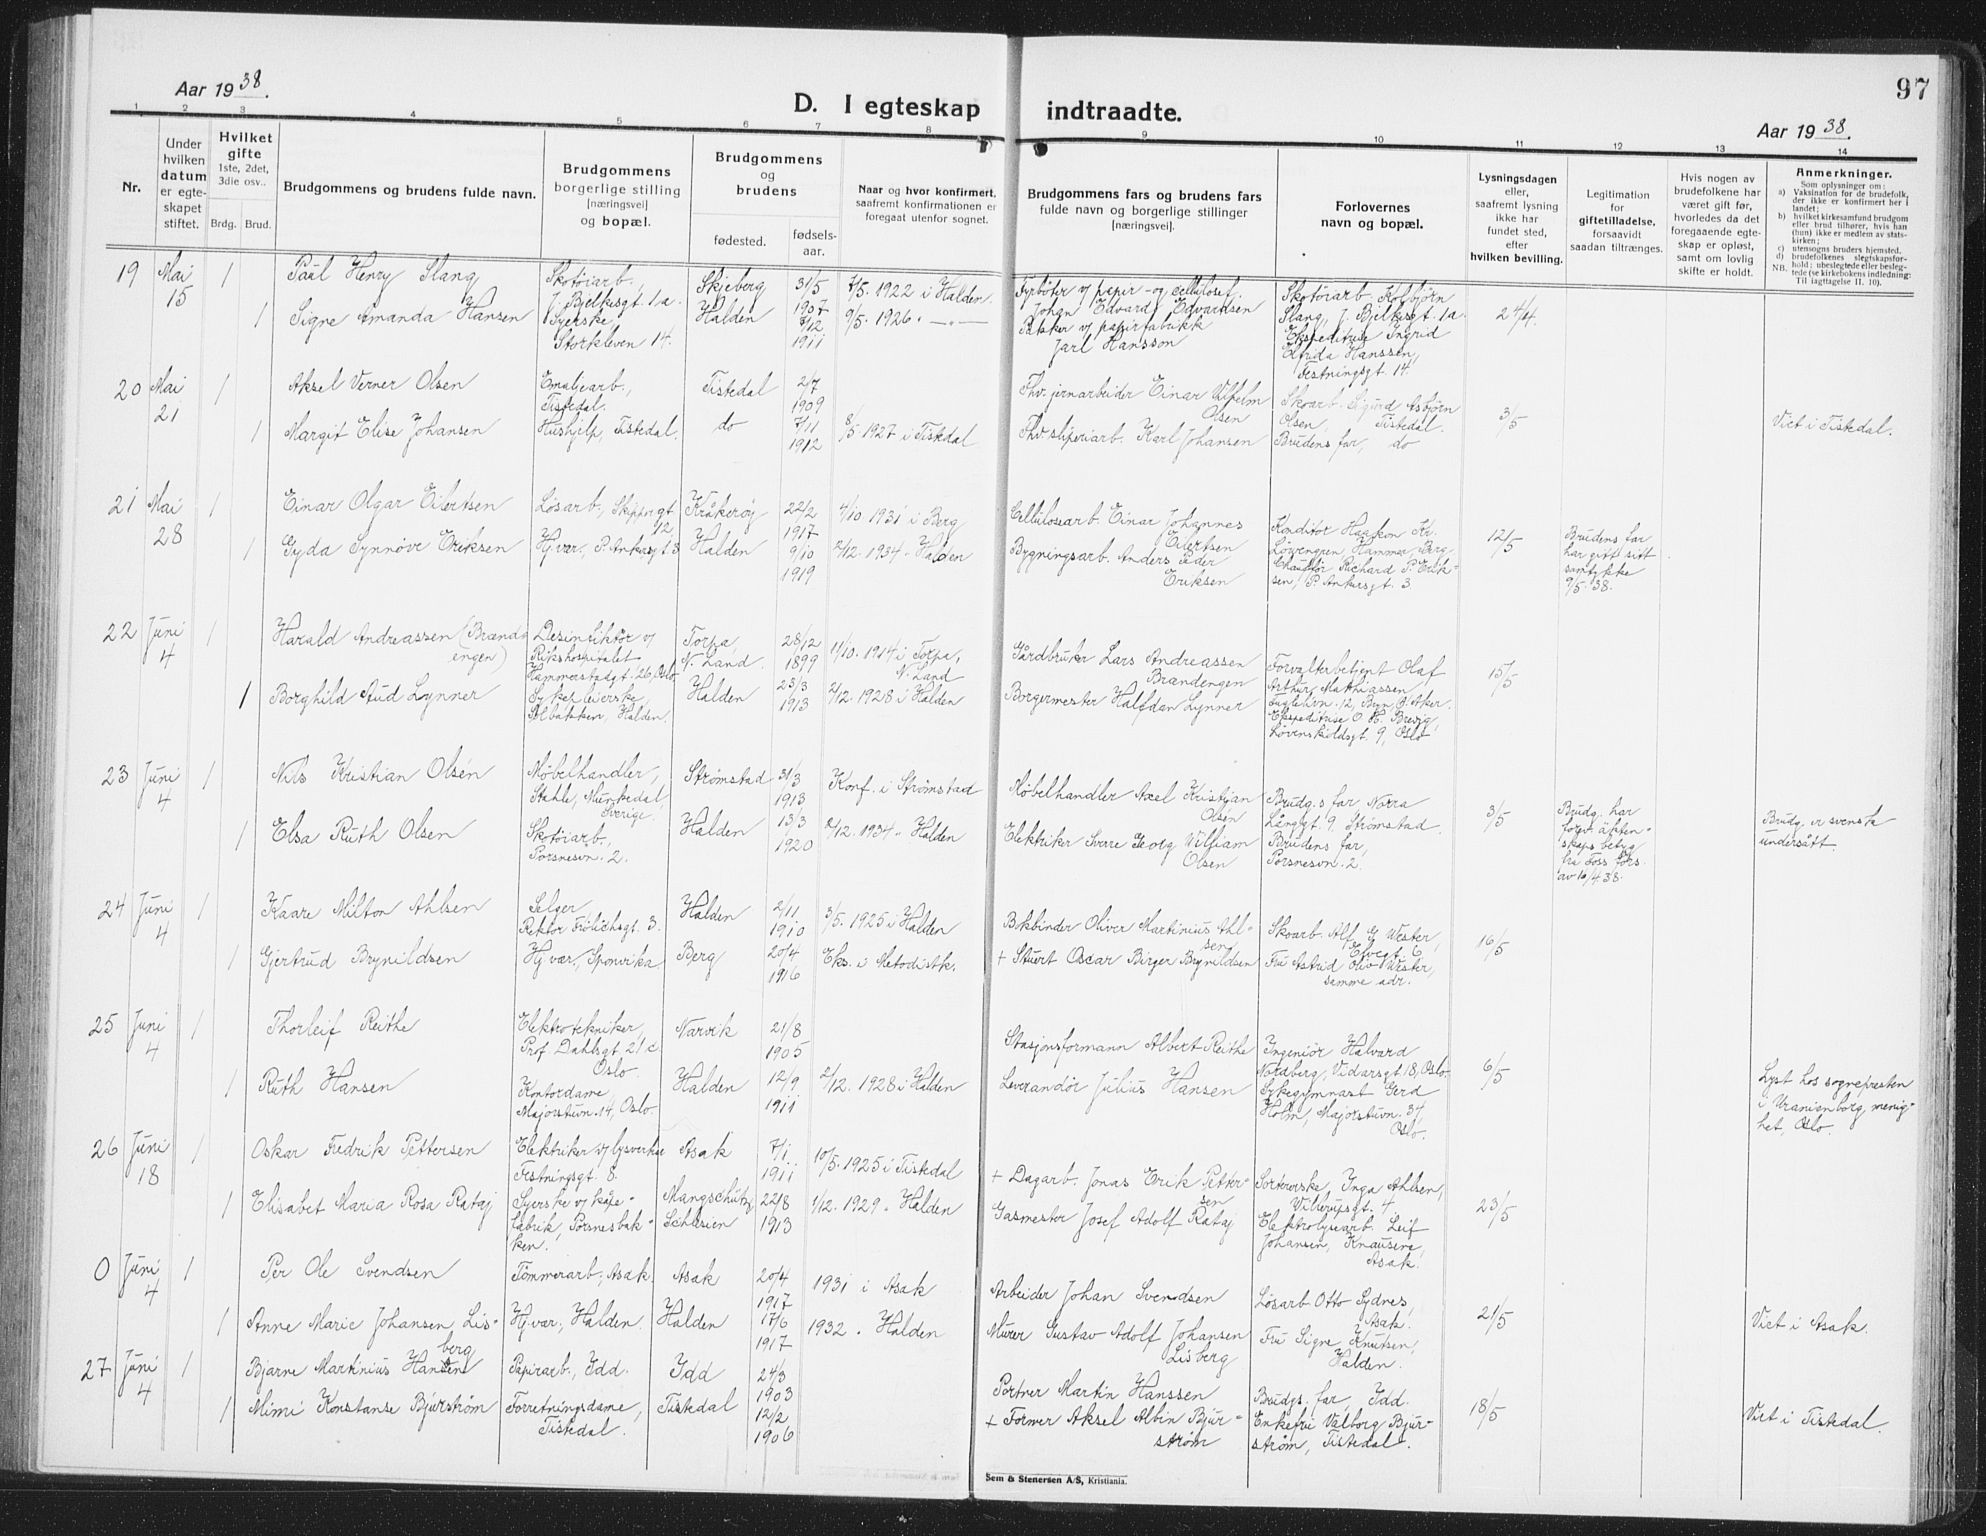 Aar 1938.
D. I egteskap indtraadte.
97
Aar 1938.
1 2 3 4 5 6 7 8 9 10 11 12 13 14
Nr.
Under hvilken datum er egteskapet stiftet.
Hvilket gifte
1ste, 2det, 3die osv..
Brdg. Brud.
Brudgommens og brudens fulde navn.
Brudgommens borgerlige stilling [næringsvei] og bopæl.
Brudgommens og brudens
fødested.
fødselsaar.
Naar og hvor konfirmert, saafremt konfirmationen er foregaat utenfor sognet.
Brudgommens fars og brudens fars fulde navn og borgerlige stillinger [næringsvei].
Forlovernes navn og bopæl.
Lysningsdagen eller, saafremt lysning ikke har fundet sted, efter hvilken bevilling.
Legitimation for giftetilladelse, forsaavidt saadan tiltrænges.
Hvis nogen av brudefolkene har været gift før, hvorledes da det foregaaende egteskap er opløst, samt om lovlig skifte er holdt.
Anmerkninger.
Som oplysninger om:
a) Vaksination for de brudefolk, der ikke er konfirmert her i landet;
b) hvilket kirkesamfund brudgom eller brud tilhører, hvis han (hun) ikke er medlem av statskirken;
c) utensogns bruders hjemsted.
d) brudefolkenes slegtskapsforhold; ubeslegtede eller beslegtede (se kirkebokens indledning:
NB. Til Iagttagelse II. 10).
19 Mai 15 1 Paul Henry Slang Skotøiarb., J. Bjelkesgt. 1.a. Skjeberg 31/5 1907 7/5. 1922 i Halden. Fyrbøter v/ papir- og cellulosef. Johan Edvard Edvardsen Skotøiarb. Kolbjørn Slang, J. Bjelkesgt. 1a. 24/4.
1 Signe Amanda Hansen Syerske, Storkleven 14. Halden 7/12 1911 9/5. 1926. —"— Pakker v/ papirfabrikk Jarl Hansson Ekspeditrise Ingrid Elfrida Hanssen, Festningsgt. 14.
20 Mai 21 1 Aksel Verner Olsen Emaljearb., Tistedal. Tistedal 2/7 1909 Fhv. jernarbeider Einar Vilhelm Olsen Skoarb. Sigurd Asbjørn Olsen, Tistedal. 3/5 Viet i Tistedal.
1 Margit Elise Johansen Hushjelp, Tistedal. do 7/11 1912 8/5 1927 i Tistedal Fhv. sliperiarb. Karl Johansen Brudens far, do
21 Mai 28 1 Einar Olgar Eilertsen Løsarb., Skippergt. 12 Kråkerøy 22/2 1917 4/10 1931 i Berg Cellulosearb. Einar Johannes Eilertsen Konditor Haakon Kr. Løvengren Hammer, Berg 12/5 Brudens far har gitt sitt samtykke 9/5. 38.
1 Gyda Synnøve Eriksen Hj. vær., P. Ankersgt. 3 Halden 9/10 1919 2/12. 1934 " Halden Bygningsarb. Anders Peder Eriksen Chauffør Richard P. Eriksen, P. Ankersgt. 3.
22 Juni 4 1 Harald Andreassen (Brændengen) Desinfiktør v/ Rikshospitalet Hammerstadgt. 26, Oslo Torpa, N. Land. 28/12 1899 11/10. 1914 i Torpa, N. Land Gårdbruker Lars Andreassen Brændengen Forvalterbetjent Olaf Arthur Matthiassen Fuglehvn. 12, Bryn, Ø. Aker. 15/5
1 Borghild Aud Lynner Sykepleierske, Ålbakken, Halden. Halden 23/3 1913 2/12. 1928 i Halden Borgermester Halfdan Lynner Ekspeditrise O. H. Brevig, Løvenskioldsgt. 9, Oslo
23 Juni 4 1 Nils Kristian Olsén Møbelhandler, Stahle, Munkedal, Sverige. Strømstad 31/3 1913 Konf. i Strømstad Møbelhandler Axel Kristian Olsén Brudg.s far Norra Långgt. 9, Strømstad. 3/5 Brudg. har forev. äktenskaps betyg fra Foss förs. av 10/4 38. Brudg. er svensk undersått.
1 Elsa Ruth Olsen Skotøiarb., Porsnesvn. 2. Halden 13/3 1920 2/12. 1934 " Halden Elektriker Sverre Georg William Olsen Brudens far, Porsnesvn. 2.
24 Juni 4 1 Kaare Milton Ahlsen Selger, Rektor Frölichsgt. 3. Halden 2/11 1910 3/5. 1925 i Halden Bokbinder Oliver Martinius Ahlsen Skoarb. Alf G. Wester, Elvegt. 6 16/5
1 Gjertrud Brynildsen Hj. vær., Sponvika. Berg 20/4 1916 Eks. i Metodistk. + Stuert Oscar Birger Brynildsen Fru Astrid Oliv. Wester, samme adr.
25 Juni 4 1 Thorleif Reithe Elektrotekniker, Prof. Dahlsgt. 21 c. Oslo. Narvik 21/8 1905 Stasjonsformann Albert Reithe Ingeniør Halvard Nordberg, Vidarsgt. 18, Oslo. 6/5 Lyst hos sognepresten i Uranienborg menighet, Oslo.
1 Ruth Hansen Kontordame Majorstuvn. 14, Oslo. Halden 12/9 1911 2/12. 1928 i Halden Leverandør Julius Hansen Sykegymnast Gerd Holm, Majorstuvn. 34, Oslo.
26 Juni 18 1 Oskar Fredrik Pettersen Elektriker v/ lysverket Festningsgt. 8. Asak 7/1 1911 10/5. 1925 i Tistedal + Dagarb. Jonas Erik Pettersen Sorterske, Inga Ahlsen, Villerupsgt. 4 23/5
1 Elisabet Maria Rosa Rataj Syerske v/ kåpefabrik, Porsnesbakken. Mangschutz, Schlesien 22/8 1913 1/12. 1929 " Halden Gasmester Josef Adolf Rataj Elektrolysearb. Leif Johansen, Knausene, Asak.
0 Juni 4 1 Per Ole Svendsen Tømmerarb., Asak. Asak 20/4 1917 1931 i Asak Arbeider Johan Svendsen Løsarb. Otto Sydnes, Asak. 21/5 Viet i Asak.
1 Anne Marie Johansen Lisberg Hj. vær., Halden. Halden 17/6 1917 1932 " Halden Murer Gustav Adolf Johansen Lisberg Fru Signe Knutsen, Halden.
27 Juni 4 1 Bjarne Martinius Hansen Papirarb., Idd. Idd 24/3 1903 Portner Martin Hanssen Brudgs. far, Idd. 18/5 Viet i Tistedal.
1 Mimi Konstanse Bjurstrøm Forretningsdame, Tistedal. Tistedal 12/2 1906 + Former Aksel Albin Bjurstrøm Enkefru Valborg Bjurstrøm, Tistedal.
Sem & Stenersen A/S, Kristiania.